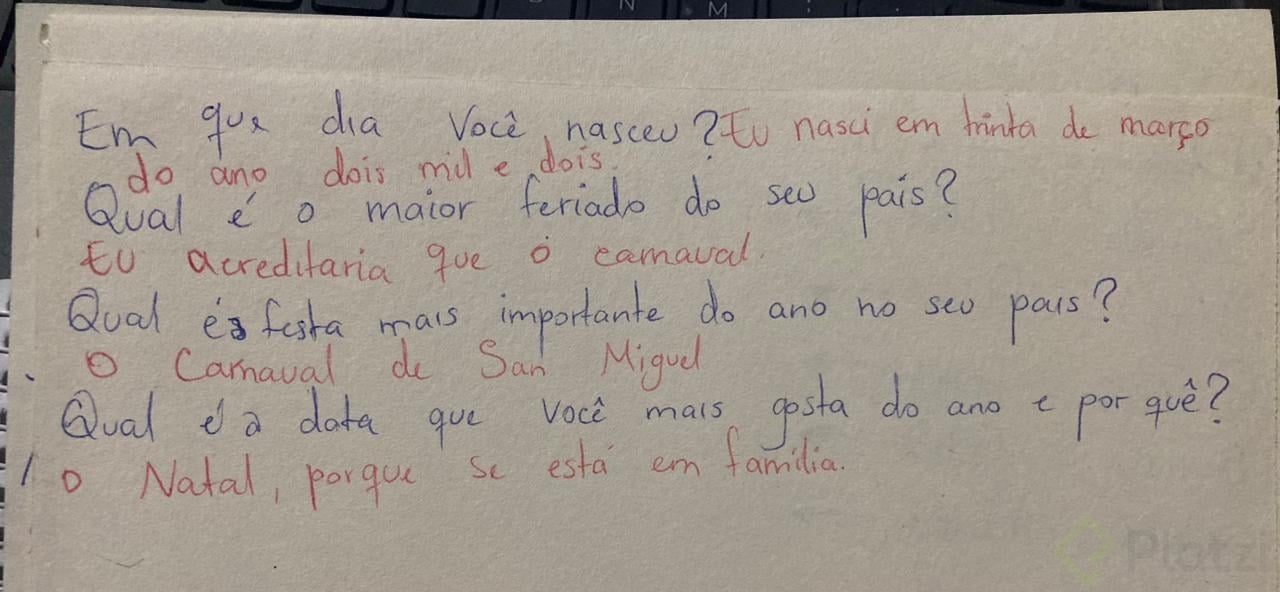 N M
Em que dia você nasceu? Eu nasci em trinta de março
do ano dois mil e dois.
Qual é o maior feriado do seu país?
Eu acreditaria que o carnaval.
Qual é a festa mais importante do ano no seu pais?
O Carnaval de San Miguel
Qual é a data que você mais gosta do ano e por quê?
O Natal, porque se está em família.
Platzi